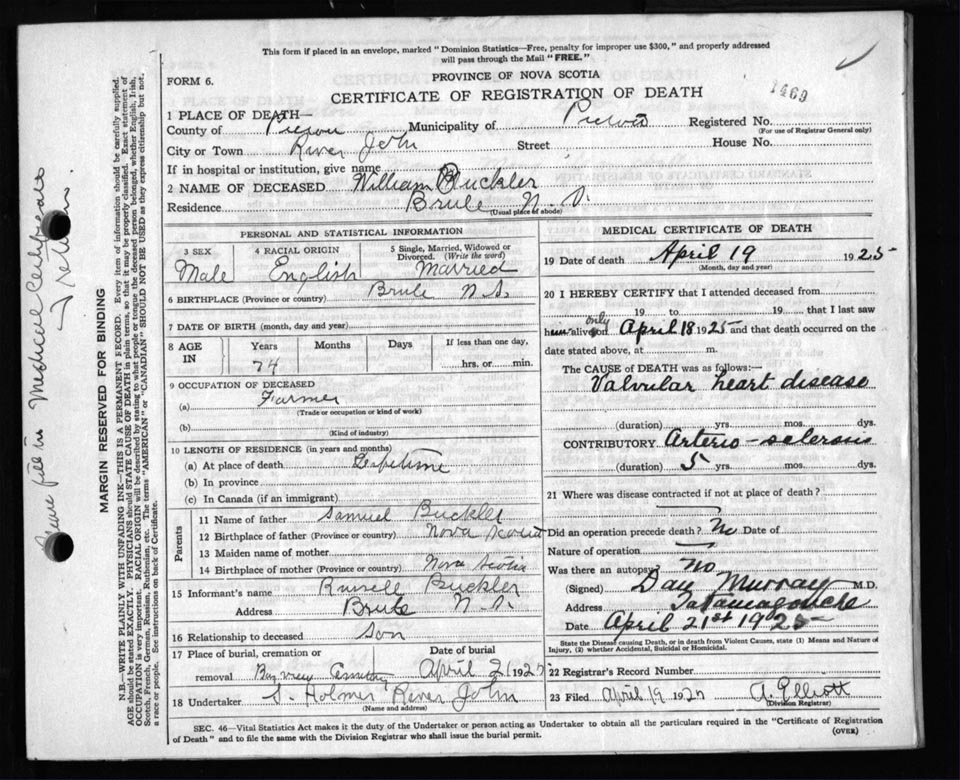 This form if placed in an envelope, marked "Dominion Statistics—Free, penalty for improper use $300," and properly addressed
will pass through the Mail "FREE."
FORM 6.
PROVINCE OF NOVA SCOTIA
CERTIFICATE OF REGISTRATION OF DEATH
1469
1 PLACE OF DEATH—
County of Pictou Municipality of Pictou Registered No.
(For use of Registrar General only)
City or Town River John Street House No.
If in hospital or institution, give name
2 NAME OF DECEASED William Buckler
Residence Brule N. S.
(Usual place of abode)
PERSONAL AND STATISTICAL INFORMATION
3 SEX 4 RACIAL ORIGIN 5 Single, Married, Widowed or Divorced. (Write the word)
Male English Married
6 BIRTHPLACE (Province or country) Brule N.S.
7 DATE OF BIRTH (month, day and year)
8 AGE IN Years Months Days If less than one day,
74 hrs. or min.
9 OCCUPATION OF DECEASED
(a) Farmer
(Trade or occupation or kind of work)
(b)
(Kind of industry)
10 LENGTH OF RESIDENCE (in years and months)
(a) At place of death Lifetime
(b) In province
(c) In Canada (if an immigrant)
Parents
11 Name of father Samuel Buckler
12 Birthplace of father (Province or country) Nova Scotia
13 Maiden name of mother
14 Birthplace of mother (Province or country) Nova Scotia
15 Informant's name Russell Buckler
Address Brule N.S.
16 Relationship to deceased Son
17 Place of burial, cremation or removal Date of burial
Bay View Cemetery April 21 1925
18 Undertaker S. Holmes River John
(Name and address)
MEDICAL CERTIFICATE OF DEATH
19 Date of death April 19 1925
(Month, day and year)
20 I HEREBY CERTIFY that I attended deceased from
19 to 19 that I last saw
h im alive only on April 18 1925 and that death occurred on the
date stated above, at m.
The CAUSE of DEATH was as follows:—
Valvular heart disease
(duration) yrs. mos. dys.
CONTRIBUTORY Arterio-sclerosis
(duration) 5 yrs. mos. dys.
21 Where was disease contracted if not at place of death?
Did an operation precede death? No Date of
Nature of operation
Was there an autopsy? No
(Signed) Dan Murray M.D.
Address Tatamagouche
Date April 21st 1925
State the Disease causing Death, or in death from Violent Causes, state (1) Means and Nature of
Injury, (2) whether Accidental, Suicidal or Homicidal.
22 Registrar's Record Number
23 Filed April 19 1925 A. Elliott
(Division Registrar)
SEC. 46—Vital Statistics Act makes it the duty of the Undertaker or person acting as Undertaker to obtain all the particulars required in the "Certificate of Registration
of Death" and to file the same with the Division Registrar who shall issue the burial permit.
(OVER)
MARGIN RESERVED FOR BINDING
N.B.—WRITE PLAINLY WITH UNFADING INK—THIS IS A PERMANENT RECORD. Every item of information should be carefully supplied.
AGE should be stated EXACTLY. PHYSICIANS should STATE CAUSE OF DEATH in plain terms, so that it may be properly classified. Exact statement of
OCCUPATION is very important. RACIAL ORIGIN will be described by stating to what people or tongue the deceased person belonged, whether English, Irish,
Scotch, French, German, Russian, Ruthenian, etc. The terms "AMERICAN" or "CANADIAN" SHOULD NOT BE USED as they express citizenship but not
a race or people. See instructions on back of Certificate.
fill in Medical Certificate